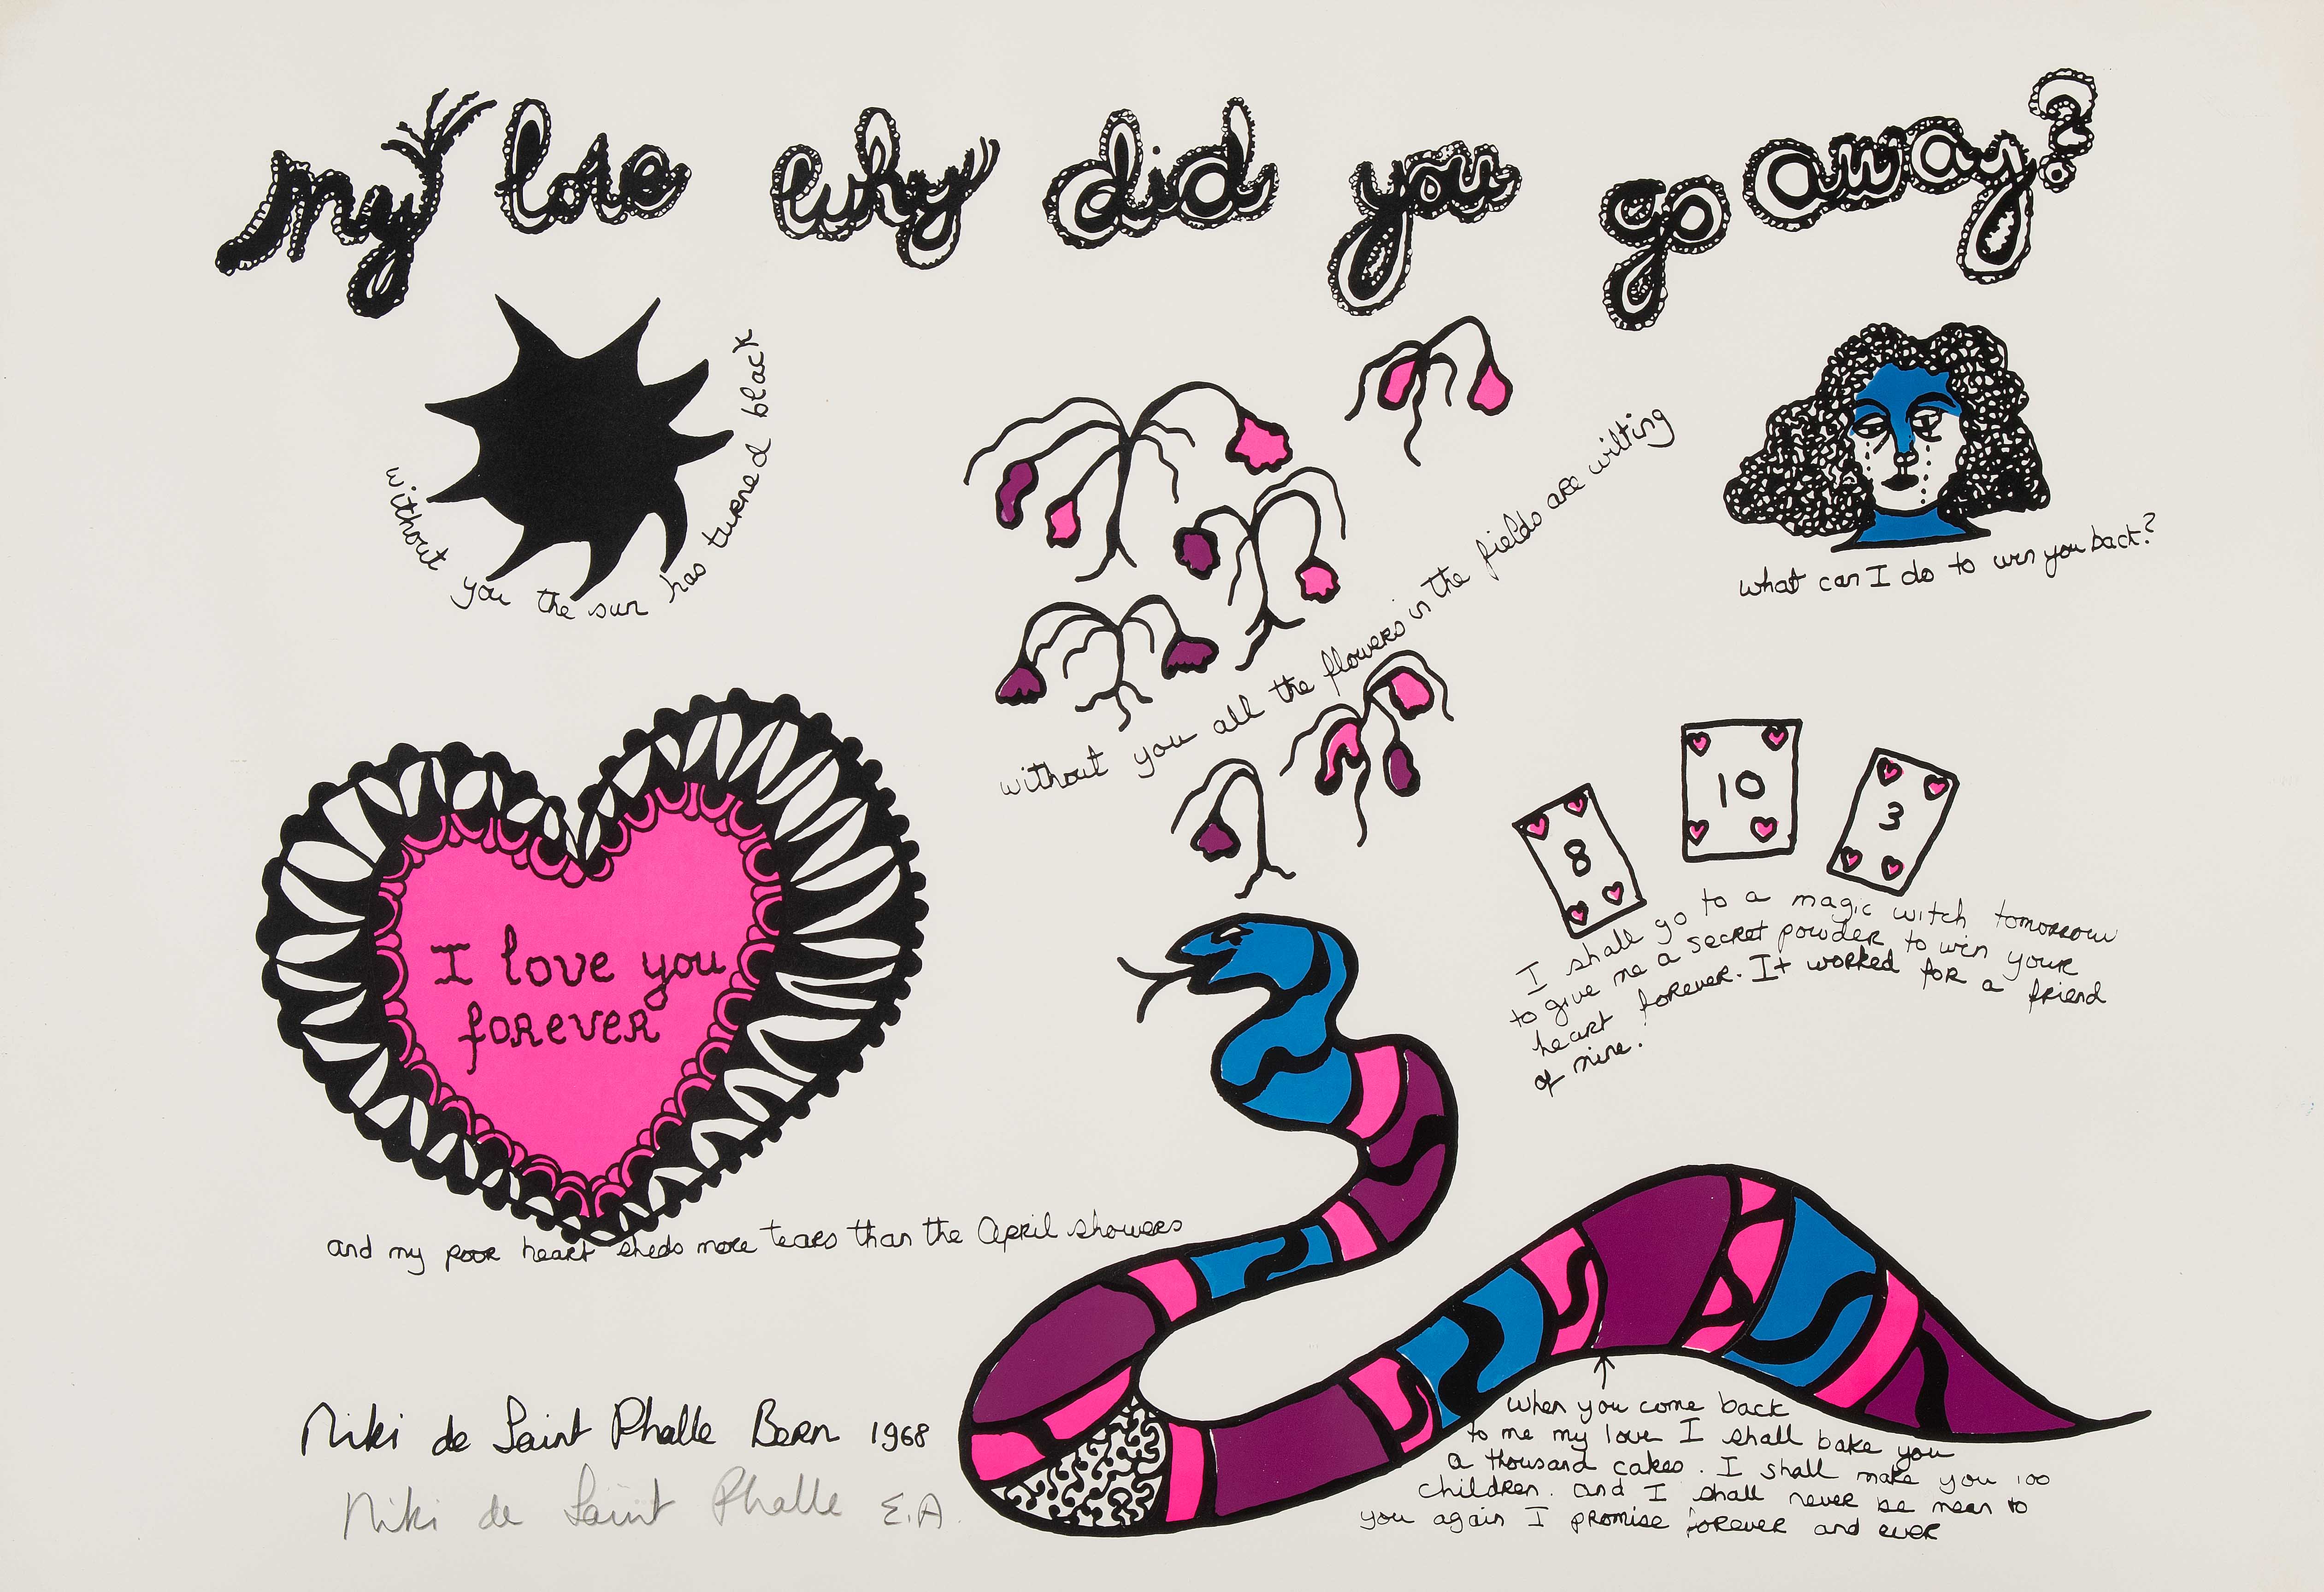 my love why did you go away?
without you the sun has turned black
without you all the flowers in the fields are wilting
what can I do to win you back?
I love you
forever
and my poor heart sheds more tears than the April showers
8
10
3
I shall go to a magic witch tomorrow
to give me a secret powder to win your
heart forever. It worked for a friend
of mine.
when you come back
to me my love I shall bake you
a thousand cakes. I shall make you 100
children. and I shall never be mean to
you again I promise forever and ever
Niki de Saint Phalle Bern 1968
Niki de Saint Phalle E.A.